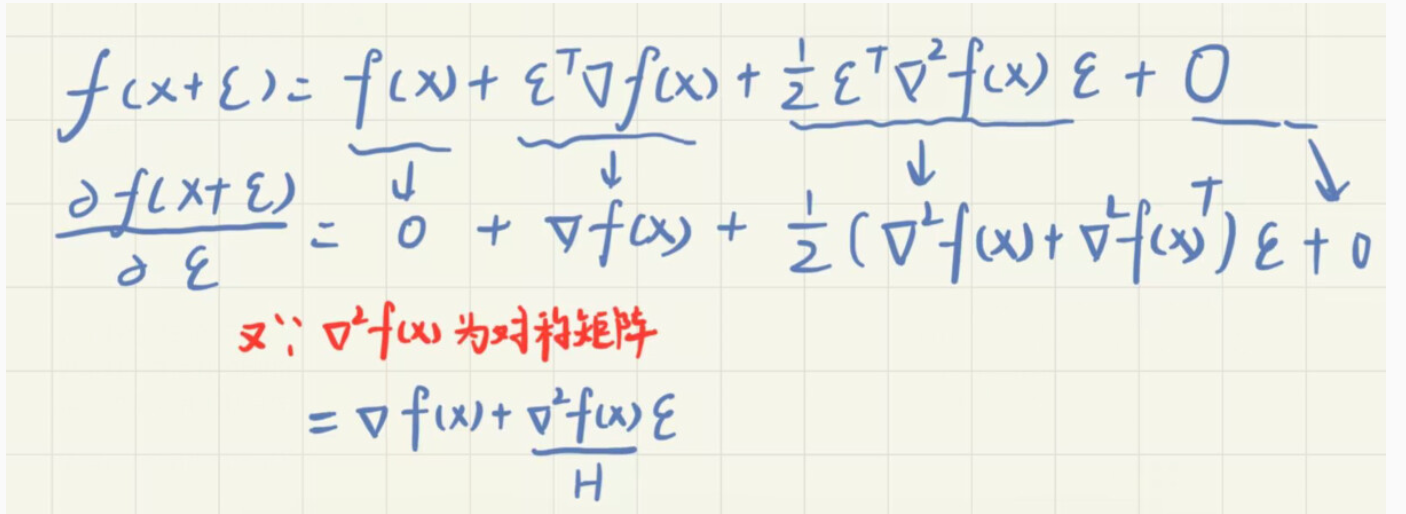 f(x+ε)= f(x)+ ε^T∇f(x) + 1/2 ε^T∇²f(x) ε + O
∂f(x+ε)/∂ε = 0 + ∇f(x) + 1/2 (∇²f(x)+∇²f(x)^T) ε + 0
又∵ ∇²f(x) 为对称矩阵
= ∇f(x)+ ∇²f(x) ε
H